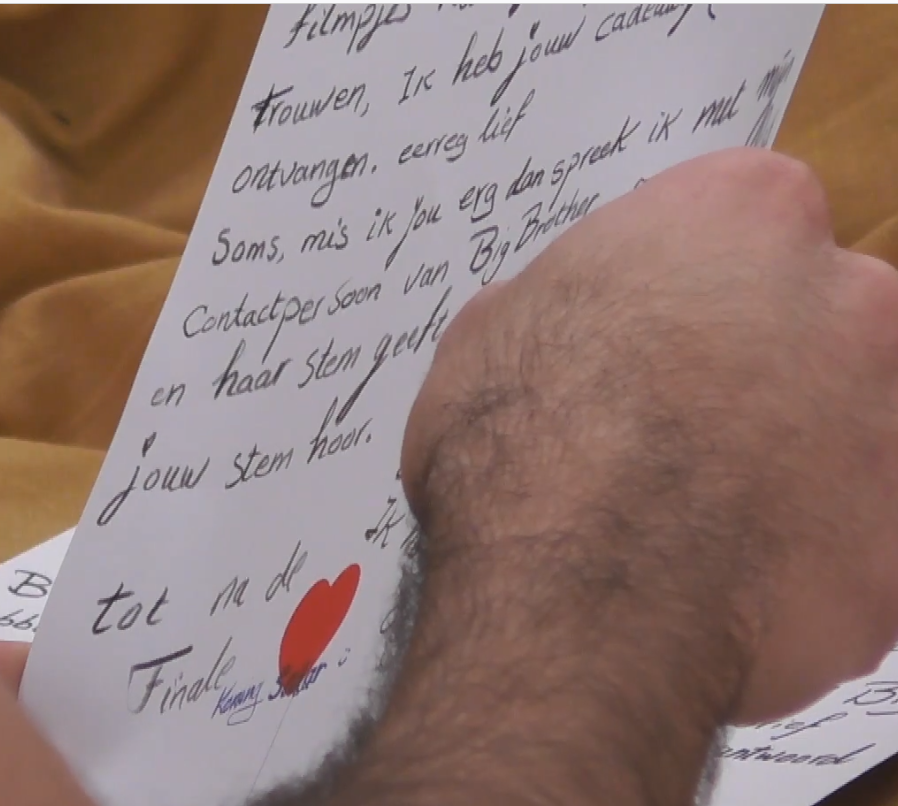 filmpjes
trouwen, Ik heb jouw cadeautje
ontvangen. eerreg lief
Soms, mis ik jou erg dan spreek ik met mijn
Contactpersoon van Big Brother
en haar stem geeft
jouw stem hoor.
Ik
tot na de
Finale
antwoord